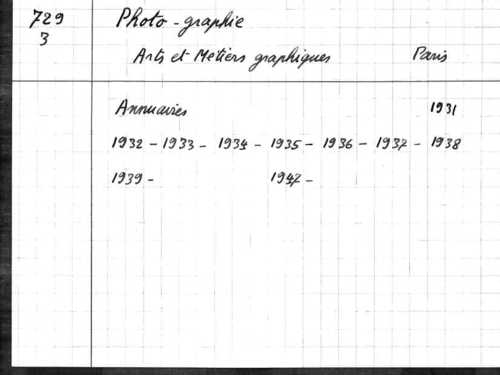 729 Photo-graphie
3
Arts et Métiers graphiques Paris
Annuaires 1931
1932 - 1933 - 1934 - 1935 - 1936 - 1937 - 1938
1939 - 1947 -